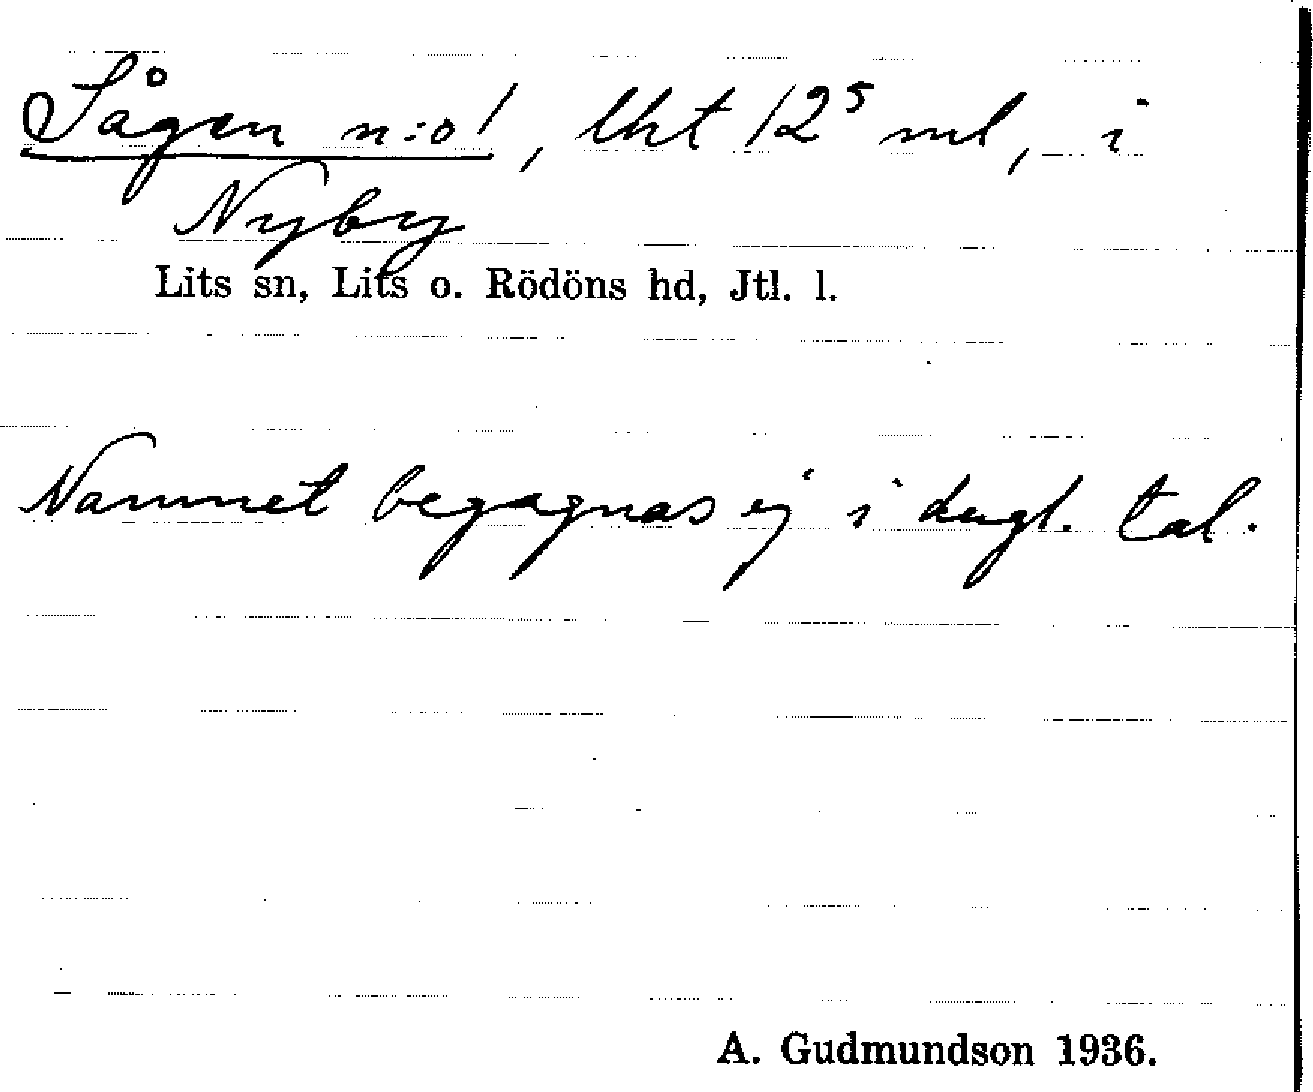 Sågen n:o 1, lht 12⁵ ml, i
Nyby
Lits sn, Lits o. Rödöns hd, Jtl. l.
Namnet begagnas ej i dagl. tal.
A. Gudmundson 1936.